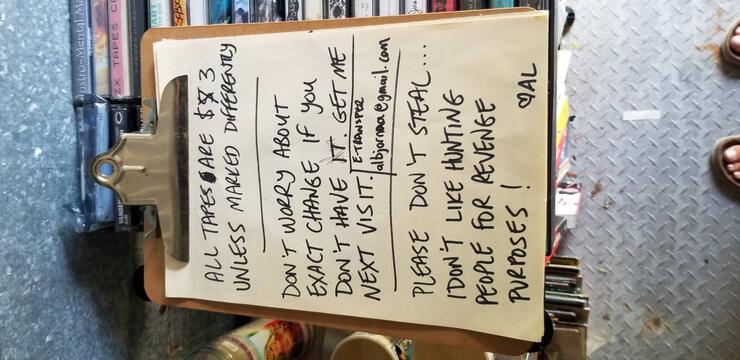 ALL TAPES ARE $3
UNLESS MARKED DIFFERENTLY
DON'T WORRY ABOUT
EXACT CHANGE IF YOU
DON'T HAVE IT. GET ME
NEXT VISIT.
E-TRANSFER
albjorma@gmail.com
PLEASE DON'T STEAL...
I DON'T LIKE HUNTING
PEOPLE FOR REVENGE
PURPOSES!
♡AL
TAPES